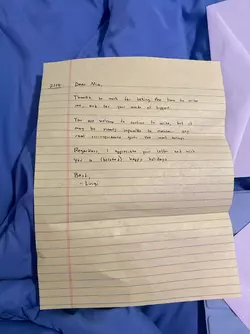 2/14
Dear Mia,
Thanks so much for taking the time to write
me, and for your words of support.
You are welcome to continue to write, but it
may be nearly impossible to maintain any
real correspondence given the
Regardless, I appreciate your letter and wish
you a (belated) happy holidays.
Best,
- Luigi